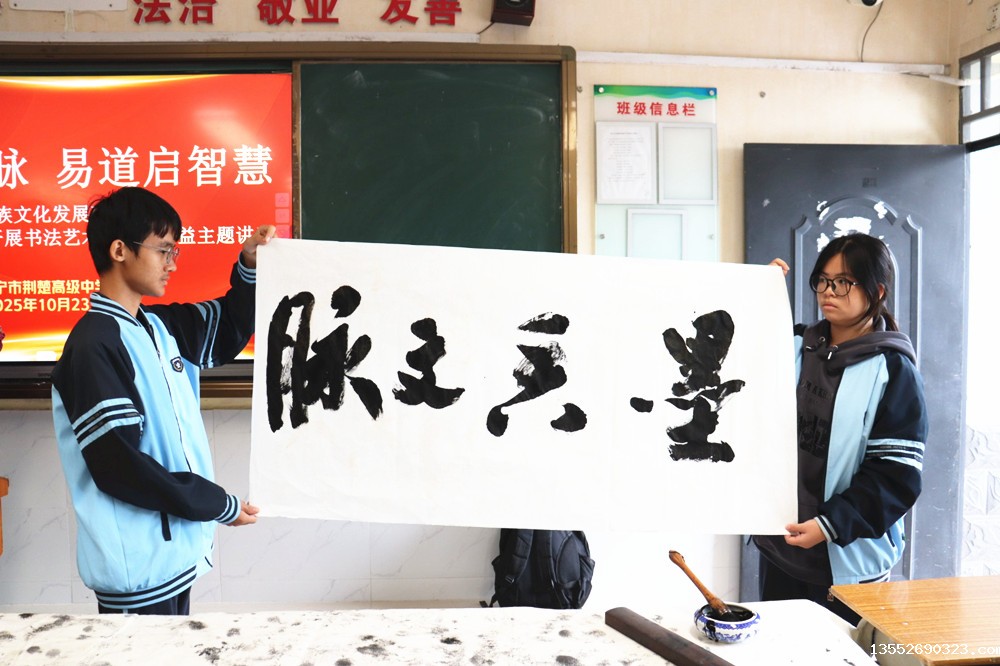 法治 敬业 友善
脉 易道启智慧
族文化发展
展书法艺 益主题讲
宁市荆楚高级中
025年10月23
班级信息栏
墨 文脉
13552690323.co